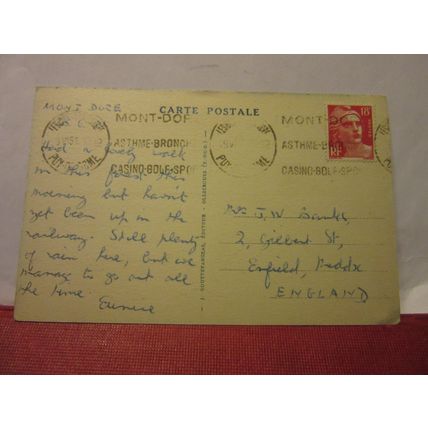 CARTE POSTALE
MONT DORE
Had a lovely walk
in the forest this
morning but haven't
yet been up in the
railway. Still plenty
of rain here, but we
manage to go out all
the time.
Eunice
MONT-DOR
ASTHME-BRONCH
CASINO-GOLF-SPOR
PUY DOME
MONT-DOR
ASTHME-BRONCH
CASINO-GOLF-SPOR
PUY DOME
18F
RF
Mrs J. W. Banks
2, Gilbert St,
Enfield, Middx
ENGLAND